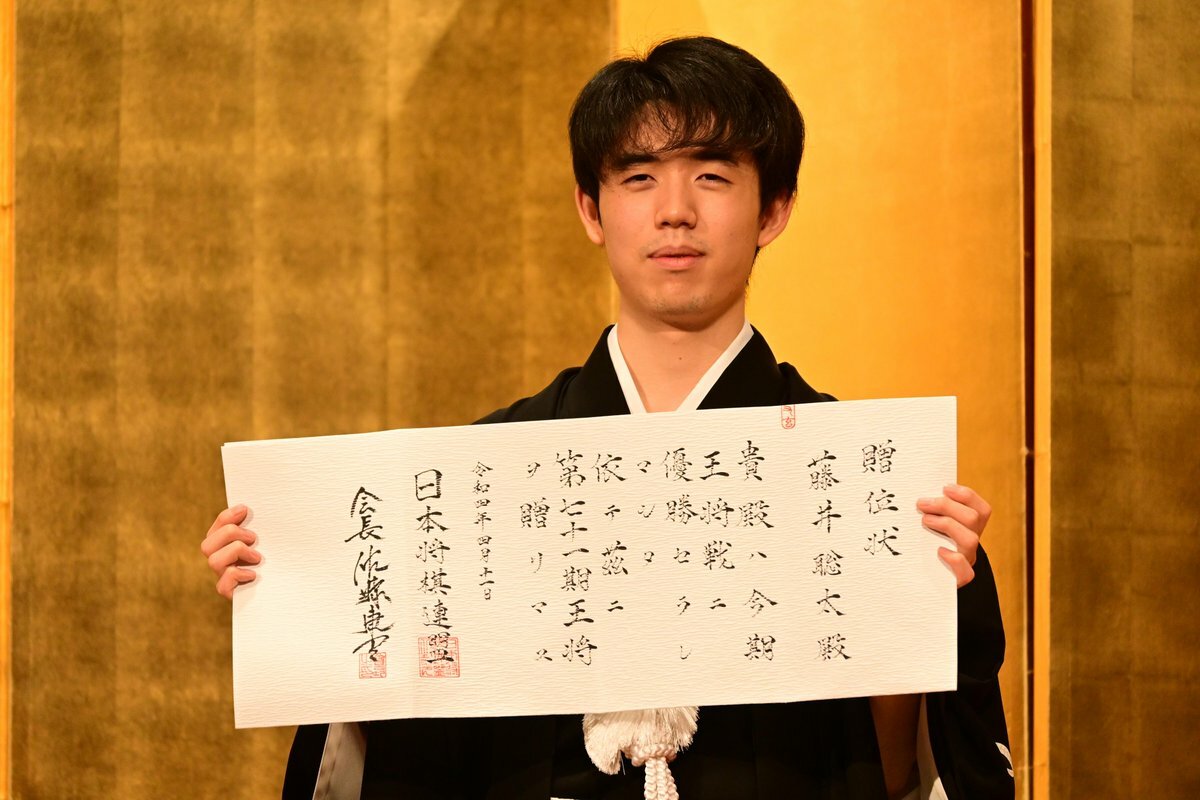 贈位状
藤井聡太殿
貴殿ハ今期
王将戦ニ
優勝セラレ
マシマ
依テ茲ニ
第七十一期王将
ヲ贈リマス
令和四年四月十一日
日本将棋連盟
会長 佐藤康光